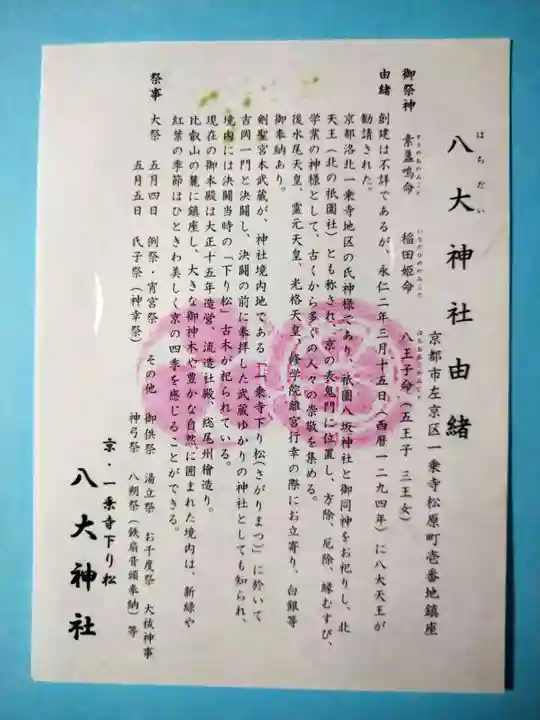 八大神社由緒
はちだい
京都市左京区一乗寺松原町壱番地鎮座
御祭神　素盞嗚命　稲田姫命　八王子命（五王子 三王女）
すさのおのみこと　いなだひめのみこと　はちおうじのみこと
由緒　創建は不詳であるが、永仁二年三月十五日（西暦一二九四年）に八大天王が
勧請された。
京都洛北一乗寺地区の氏神様であり、祇園八坂神社と御同神をお祀りし、北
天王（北の祇園社）とも称され、京の表鬼門に位置し、方除、厄除、縁むすび、
学業の神様として、古くから多くの人々の崇敬を集める。
後水尾天皇、霊元天皇、光格天皇、修学院離宮行幸の際にお立寄り、白銀等
御奉納あり。
剣聖宮本武蔵が、神社境内地である「一乗寺下り松（さがりまつ）」に於いて
吉岡一門と決闘し、決闘の前に奉拝した武蔵ゆかりの神社としても知られ、
境内には決闘当時の「下り松」古木が祀られている。
現在の御本殿は大正十五年造営、流造社殿、総尾州檜造り。
比叡山の麓に鎮座し、大きな御神木や豊かな自然に囲まれた境内は、新緑や
紅葉の季節はひときわ美しく京の四季を感じることができる。
祭事　大祭　五月四日　例祭・宵宮祭　その他　御供祭　湯立祭　お千度祭　大祓神事
五月五日　氏子祭（神幸祭）　神弓祭　八朔祭（鉄扇音頭奉納）等
京・一乗寺下り松
八大神社